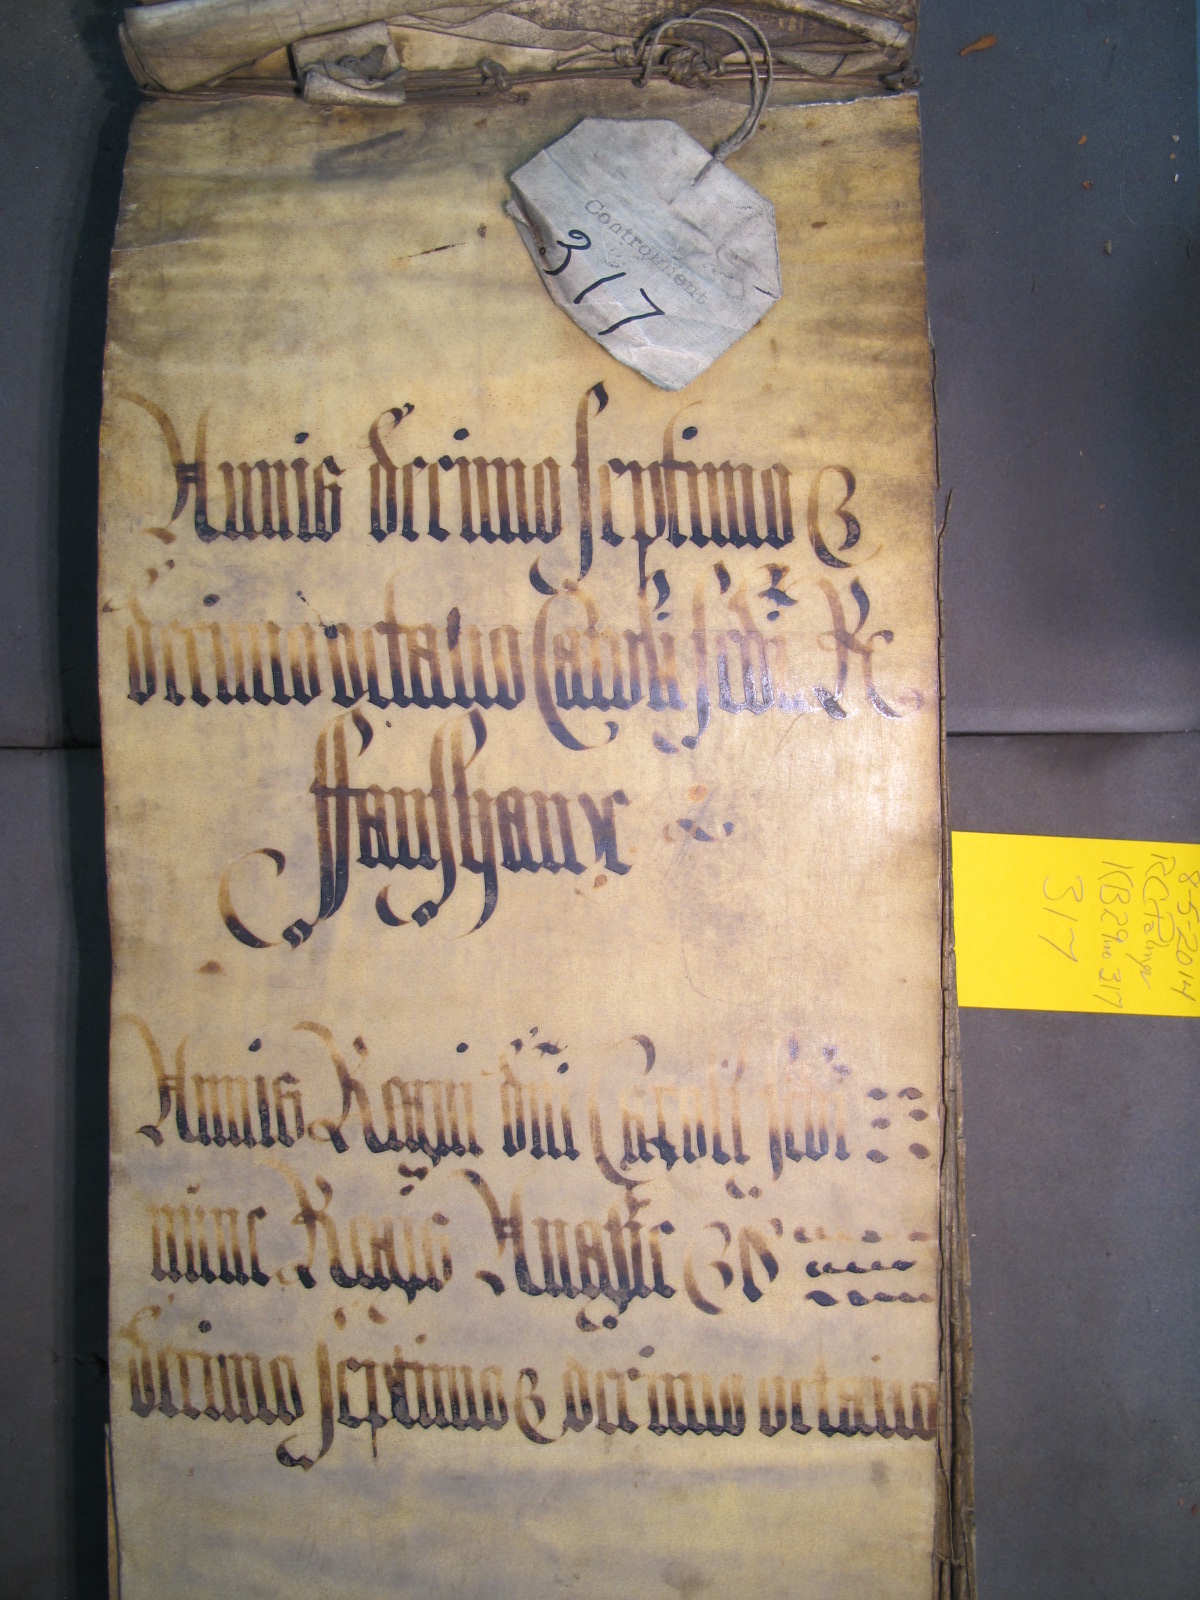 Controlment
317
Annis decimo septimo &
decimo octavo Caroli scdi R
ffanshawe
Annis Regni dni Caroli scdi
nunc Regis Anglie &c
decimo septimo & decimo octavo
8-5-2014
KB29 no 317
317